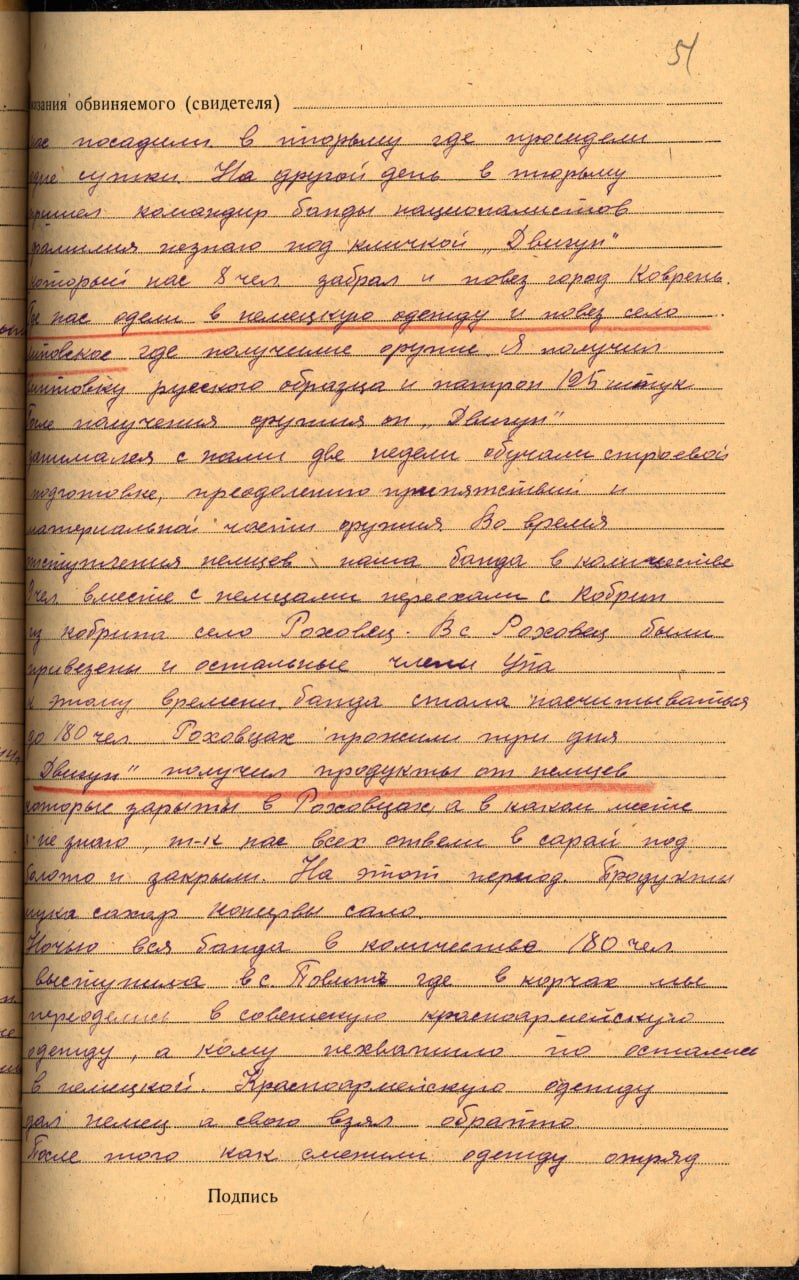 51
казания обвиняемого (свидетеля)
нас посадили в тюрьму где просидели
одне сутки. На другой день в тюрьму
пришел командир банды националистов
фамилия незнаю под кличкой „Двигун"
который нас 8 чел забрал и повез город Коврень.
Где нас одели в немецкую одежду и повез село
где получиле оружие. Я получил
винтовку русского образца и патрон 125 штук
После получения оружия он „Двигун"
занимался с нами две недели обучали строевой
подготовке, преодолению припятствий и
материальной части оружия Во время
отступления немцев наша банда в количестве
чел вместе с немцами переехали с Кобрин
из кобрина село Роховец. В с Роховец были
привезены и остальные члены Упа
к этому времени банда стала насчитываться
до 180 чел Роховцах прожили три дня
„Двигун" получил продукты от немцев
которые зарыты в Роховцах, а в каком месте
я не знаю, т-к нас всех отвели в сарай под
болото и закрыли. На этот период. Продукты
мука сахар концервы сало.
Ночью вся банда в количестве 180 чел
выступила в с. Повить где в корчах мы
переоделись в советскую красноармейскую
одежду, а кому нехватило то остались
в немецкой. Красноармейскую одежду
дал немец а свою взял обратно
После того как сменили одежду отряд
Подпись